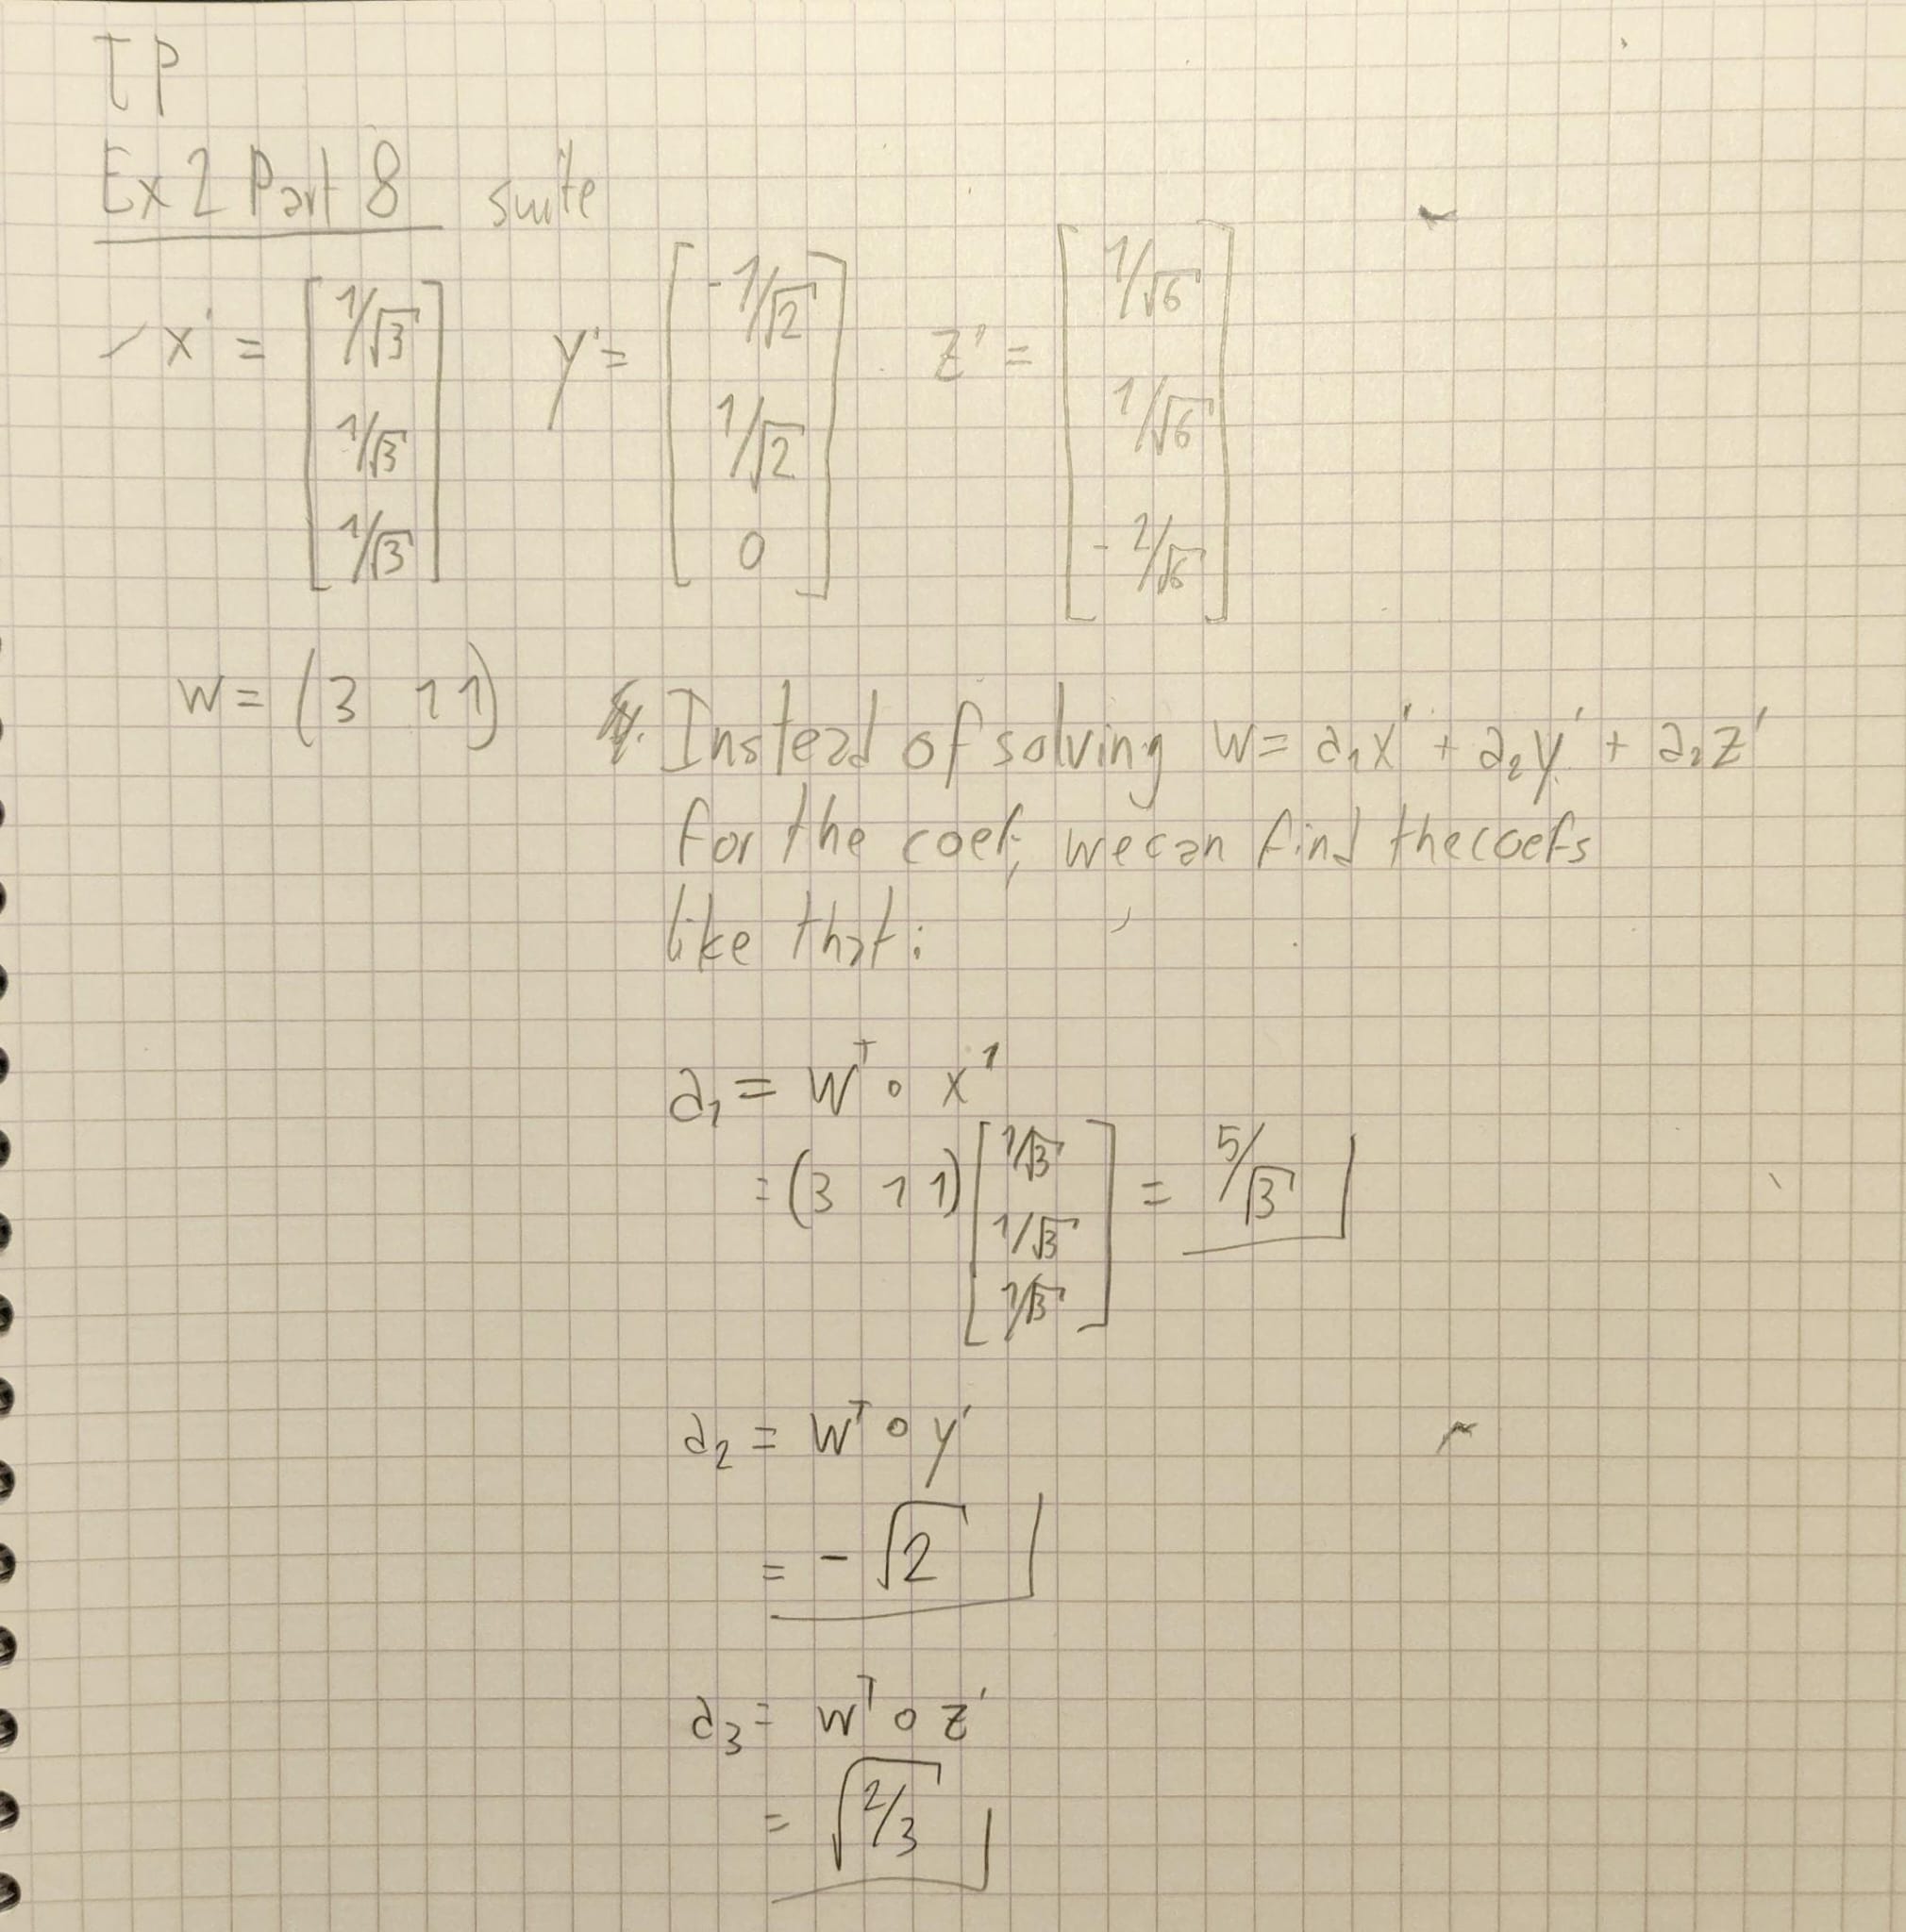 TP
Ex 2 Part 8 suite
x' = [1/√3 1/√3 1/√3] y' = [-1/√2 1/√2 0] z' = [1/√6 1/√6 -2/√6]
w = (3 1 1) Instead of solving w = a₁x' + a₂y' + a₂z'
for the coef, we can find the coefs
like that:
a₁ = wᵀ ∘ x'
= (3 1 1) [1/√3 1/√3 1/√3] = 5/√3
a₂ = wᵀ ∘ y'
= -√2
a₃ = wᵀ ∘ z'
= √2/3